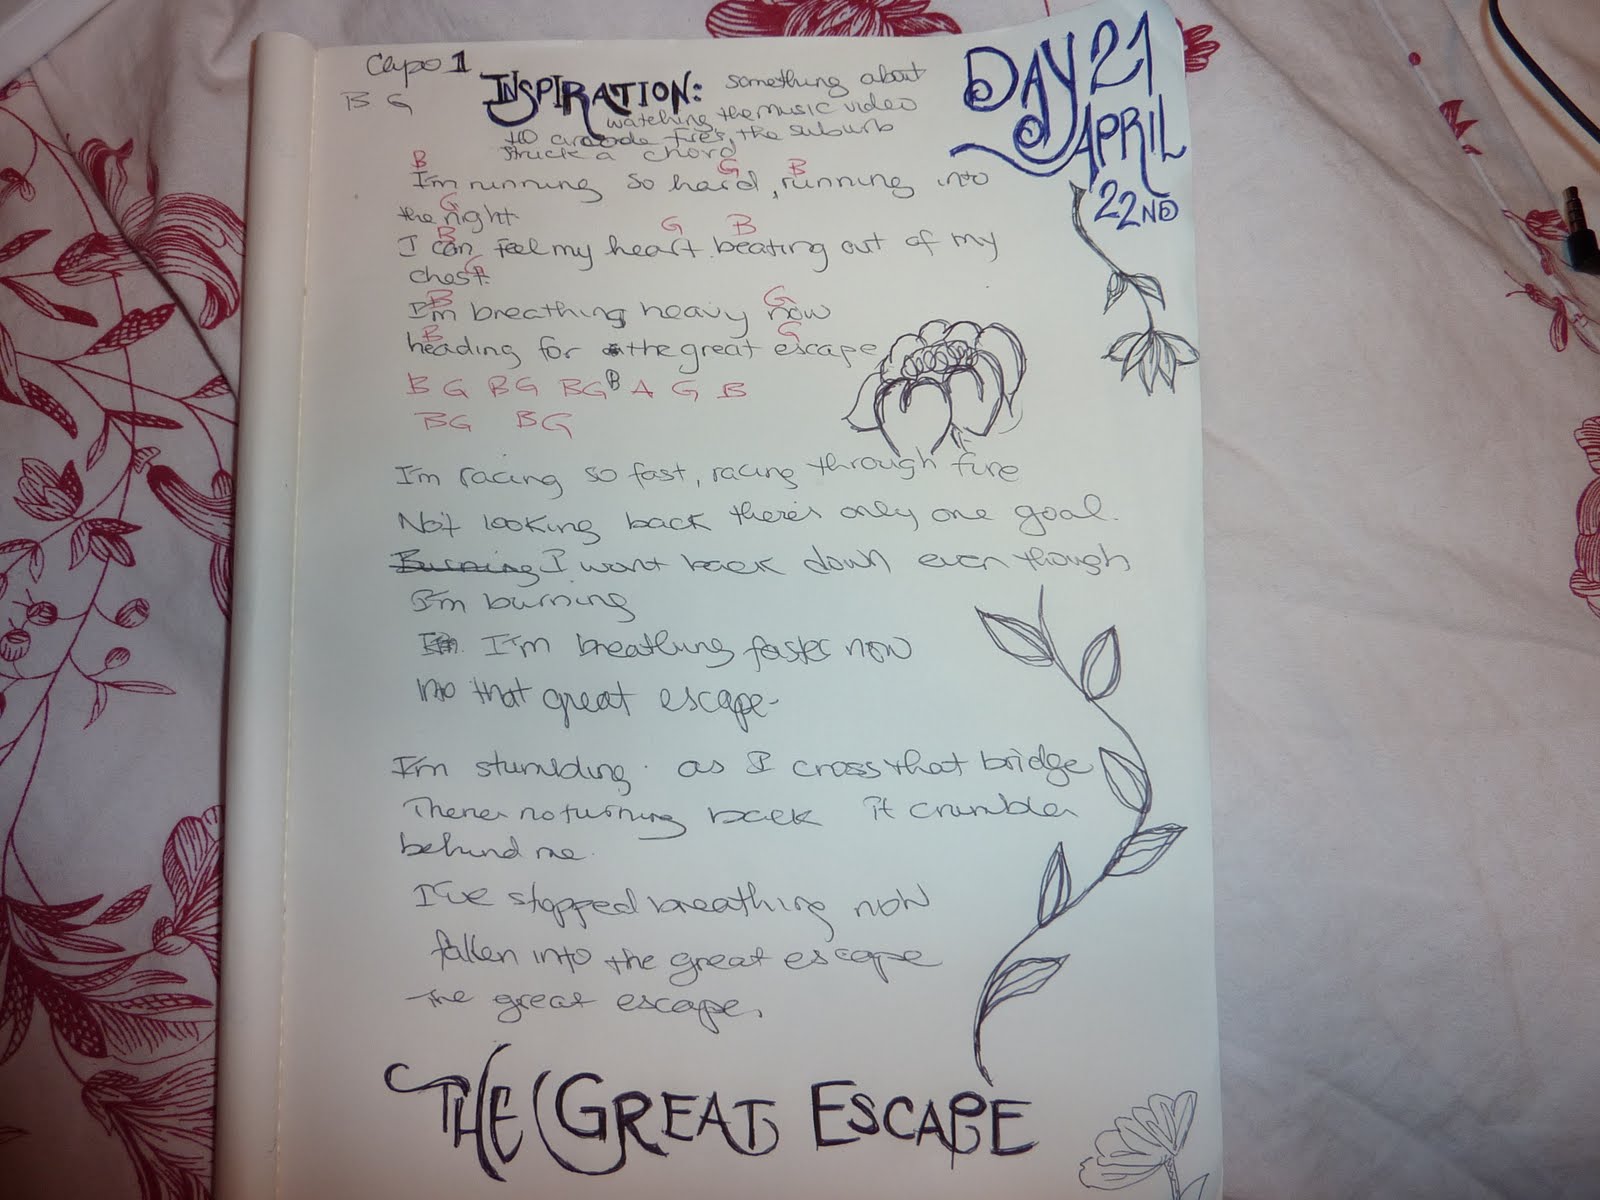 Capo 1
B G
INSPIRATION: something about
watching the music video
to arcade fire's the suburb
struck a chord
DAY 21
APRIL
22ND
B G B
I'm running so hard, running into
G
the night
B G B
I can feel my heart beating out of my
G
chest.
B G
I'm breathing heavy now
B G
heading for the great escape
B G BG BG B A G B
BG BG
I'm racing so fast, racing through fire
Not looking back there's only one goal.
Burning I wont back down even though
I'm burning
I'm I'm breathing faster now
into that great escape-
I'm stumbling. as I cross that bridge
Theres no turning back it crumbles
behind me.
I've stopped breathing now
fallen into the great escape
the great escape.
THE GREAT ESCAPE